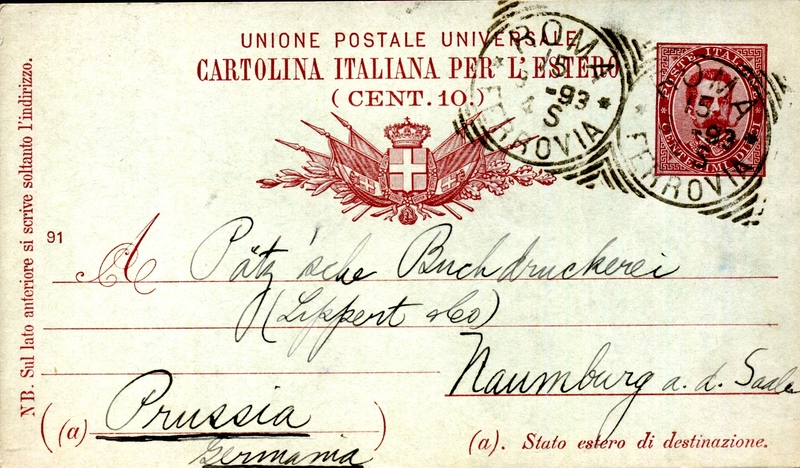 UNIONE POSTALE UNIVERSALE
CARTOLINA ITALIANA PER L'ESTERO
(CENT. 10.)
ROMA
15
-93
4 S
FERROVIA
POSTE ITALIANE
ROMA
15
-93
S
FERROVIA
NB. Sul lato anteriore si scrive soltanto l'indirizzo.
91
A Pätz'sche Buchdruckerei
(Lippert & Co)
Naumburg a. d. Saale
(a) Prussia
Germania
(a). Stato estero di destinazione.